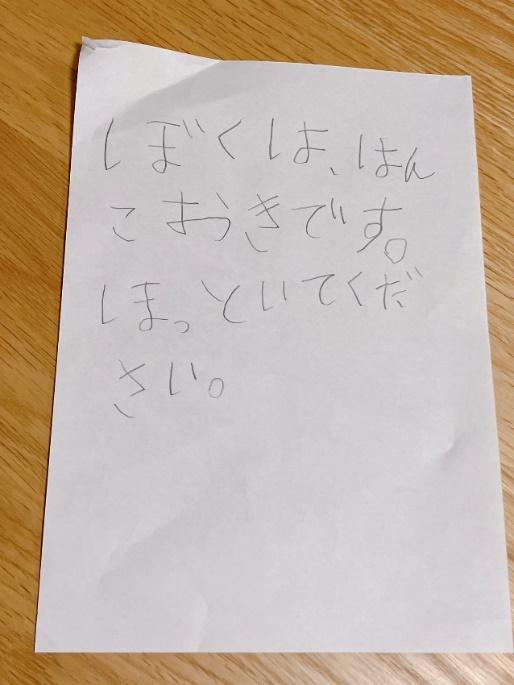 ぼくは、はん
こおうきです。
ほっといてくだ
さい。